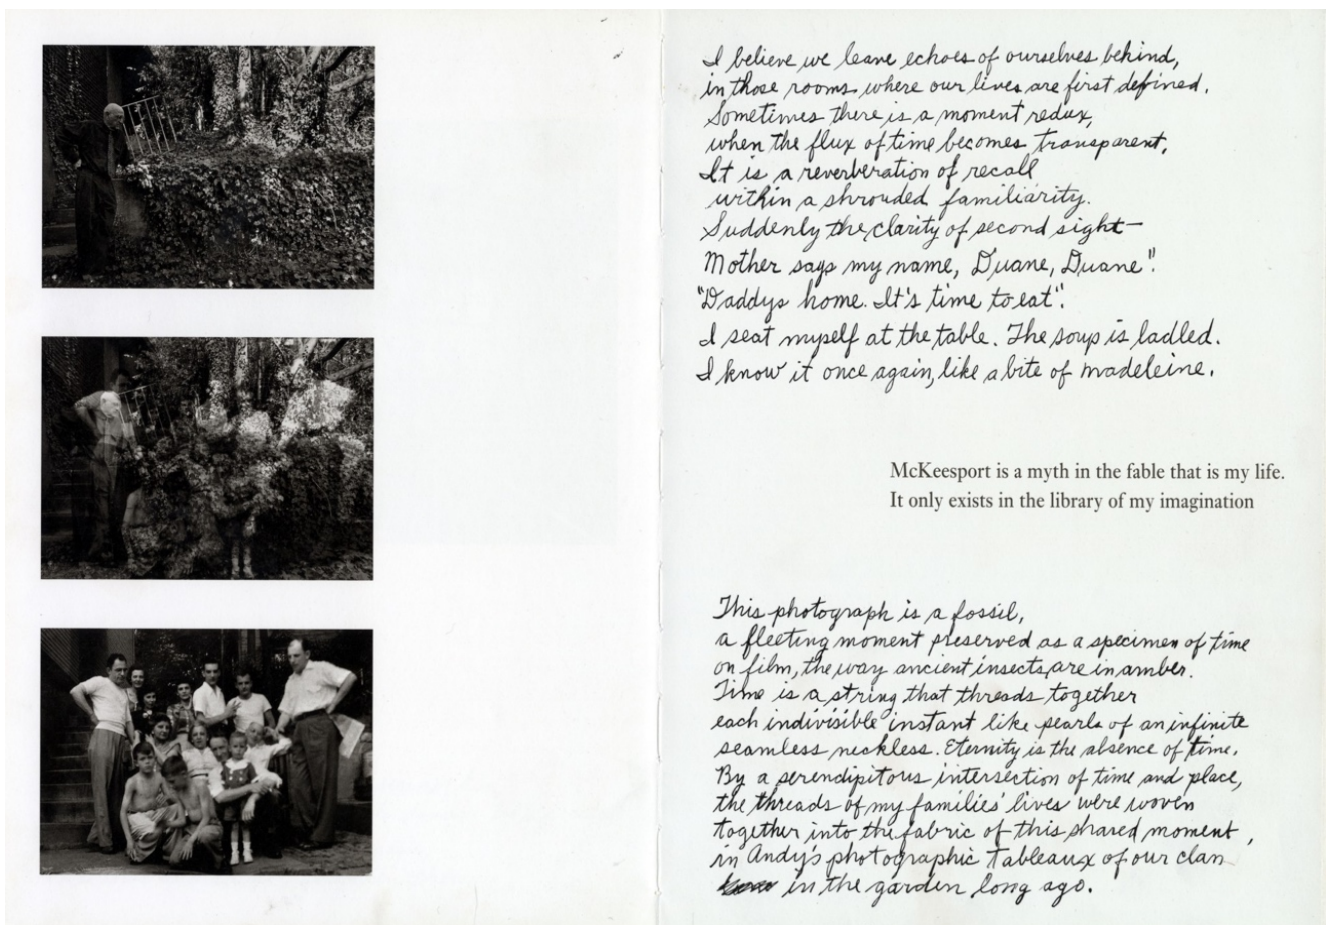 I believe we leave echoes of ourselves behind,
in those rooms where our lives are first defined.
Sometimes there is a moment redux,
when the flux of time becomes transparent.
It is a reverberation of recall
within a shrouded familiarity.
Suddenly the clarity of second sight—
Mother says my name, Duane, Duane".
"Daddys home. It's time to eat".
I seat myself at the table. The soup is ladled.
I know it once again, like a bite of madeleine.
McKeesport is a myth in the fable that is my life.
It only exists in the library of my imagination
This photograph is a fossil,
a fleeting moment preserved as a specimen of time
on film, the way ancient insects are in amber.
Time is a string that threads together
each indivisible instant like pearls of an infinite
seamless neckless. Eternity is the absence of time.
By a serendipitous intersection of time and place,
the threads of my families' lives were woven
together into the fabric of this shared moment,
in Andy's photographic Tableaux of our clan
in the garden long ago.